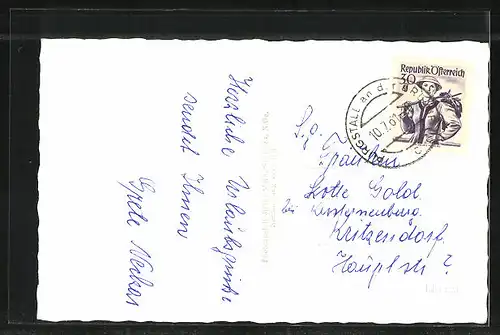 Herzliche Urlaubsgrüße
sendet Ihnen
Grete Neckar
Republik Österreich
30
PURGSTALL an d.
10.7.61
S. g.
Fräulein
Lotte Goldl
bei Korneuburg
Kritzendorf
Hauptstr ?